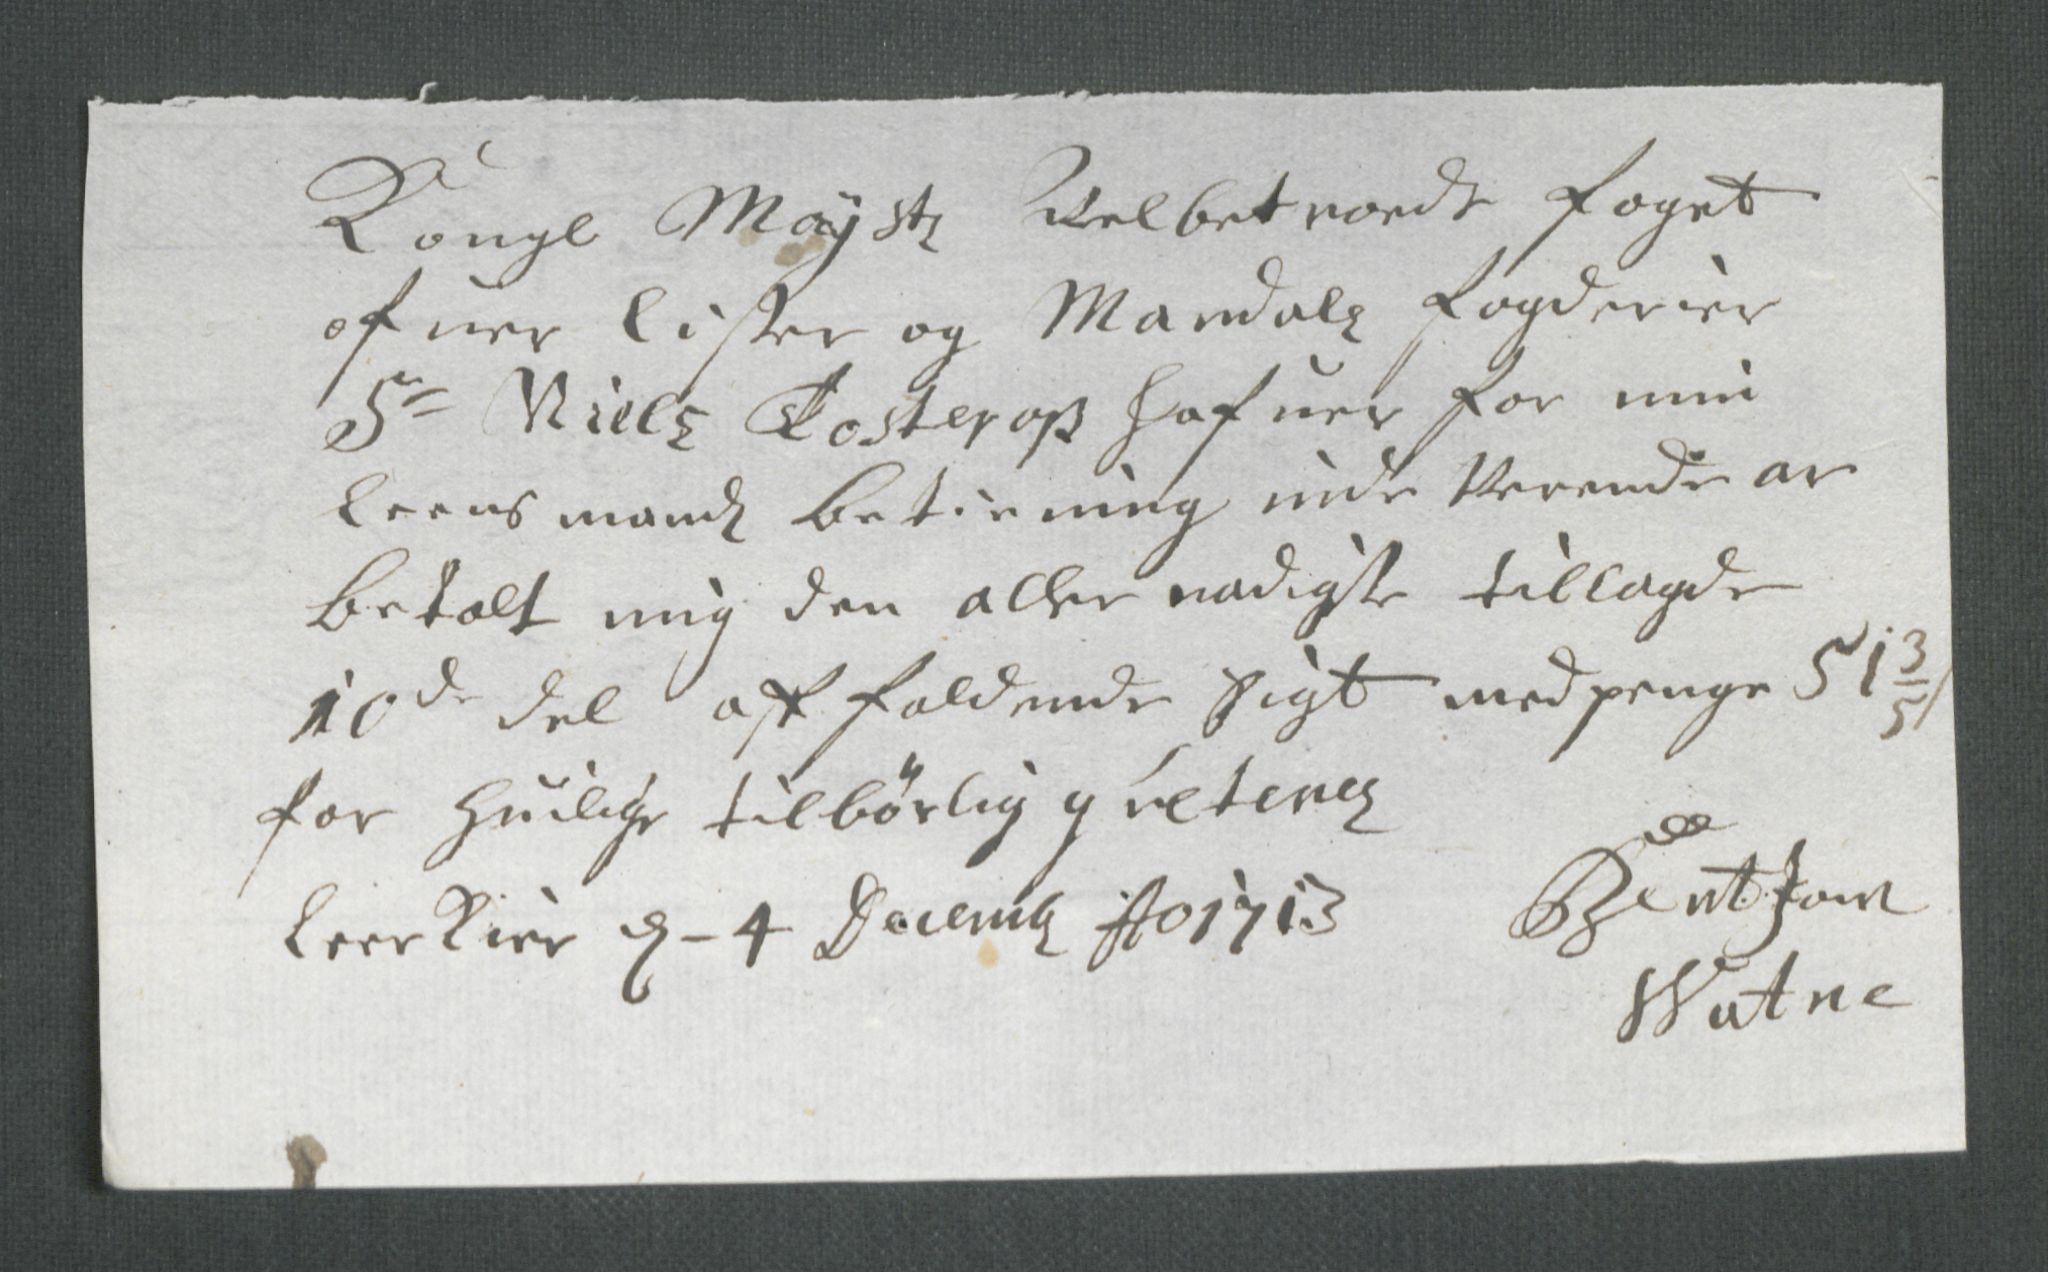 Kongl Mayst: Velbetroede foget
ofuer Lister og Mandals fogderier
Sr Niels Kosterop hafuer for min
Leensmands betiening inde Verende ar
betalt mig den aller nadigste tillagde
10de del aff faldende Sigt med penge 5 1 3/5
for huilche tilbørlig qviteres
d – 4 Decemb: Ao 1713
Bent
Watne